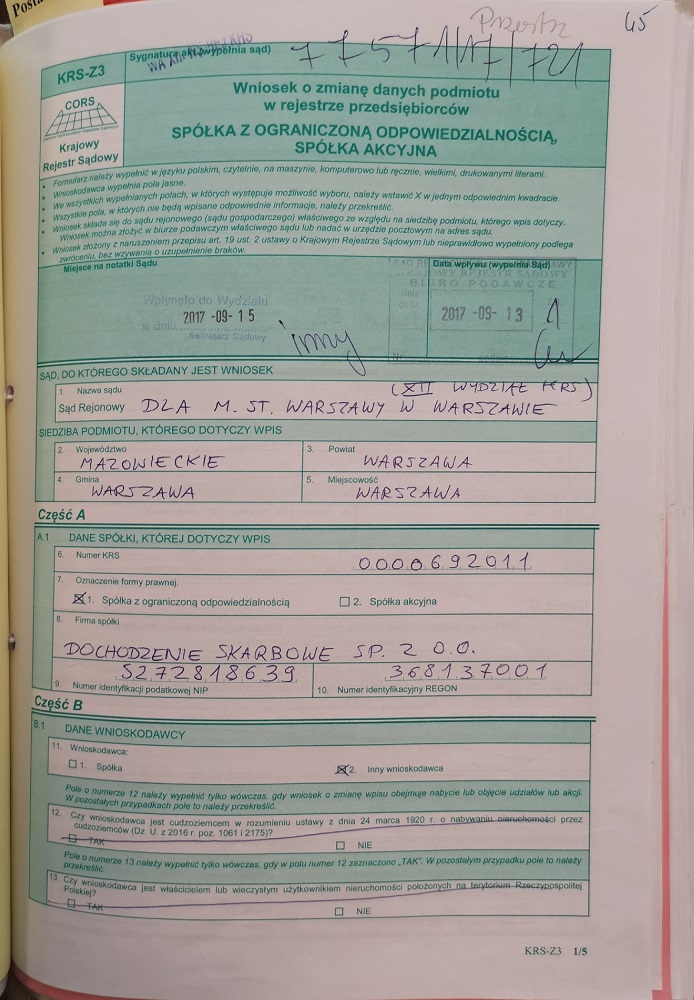 Przestz
45
KRS-Z3
Sygnatura akt (wypełnia sąd)
77571/17/721
CORS
Krajowy
Rejestr Sądowy
Wniosek o zmianę danych podmiotu
w rejestrze przedsiębiorców
SPÓŁKA Z OGRANICZONĄ ODPOWIEDZIALNOŚCIĄ,
SPÓŁKA AKCYJNA
• Formularz należy wypełnić w języku polskim, czytelnie, na maszynie, komputerowo lub ręcznie, wielkimi, drukowanymi literami.
• Wnioskodawca wypełnia pola jasne.
• We wszystkich wypełnianych polach, w których występuje możliwość wyboru, należy wstawić X w jednym odpowiednim kwadracie.
• Wszystkie pola, w których nie będą wpisane odpowiednie informacje, należy przekreślić.
• Wniosek składa się do sądu rejonowego (sądu gospodarczego) właściwego ze względu na siedzibę podmiotu, którego wpis dotyczy.
Wniosek można złożyć w biurze podawczym właściwego sądu lub nadać w urzędzie pocztowym na adres sądu.
• Wniosek złożony z naruszeniem przepisu art. 19 ust. 2 ustawy o Krajowym Rejestrze Sądowym lub nieprawidłowo wypełniony podlega
zwróceniu, bez wzywania o uzupełnienie braków.
Miejsce na notatki Sądu
Data wpływu (wypełnia Sąd)
KRAJOWY REJESTR SĄDOWY
BIURO PODAWCZE
Wpłynęło do Wydziału
w dniu 2017 -09- 15
Sekretarz Sądowy
inny
2017 -09- 13
1
SĄD, DO KTÓREGO SKŁADANY JEST WNIOSEK
1. Nazwa sądu
(XII WYDZIAŁ KRS)
Sąd Rejonowy DLA M. ST. WARSZAWY W WARSZAWIE
SIEDZIBA PODMIOTU, KTÓREGO DOTYCZY WPIS
2. Województwo
MAZOWIECKIE
3. Powiat
WARSZAWA
4. Gmina
WARSZAWA
5. Miejscowość
WARSZAWA
Część A
A.1 DANE SPÓŁKI, KTÓREJ DOTYCZY WPIS
6. Numer KRS
0000692011
7. Oznaczenie formy prawnej:
1. Spółka z ograniczoną odpowiedzialnością
2. Spółka akcyjna
8. Firma spółki
DOCHODZENIE SKARBOWE SP. Z O.O.
5272818639
9. Numer identyfikacji podatkowej NIP
368137001
10. Numer identyfikacyjny REGON
Część B
B.1 DANE WNIOSKODAWCY
11. Wnioskodawca:
1. Spółka
2. Inny wnioskodawca
Pole o numerze 12 należy wypełnić tylko wówczas, gdy wniosek o zmianę wpisu obejmuje nabycie lub objęcie udziałów lub akcji.
W pozostałych przypadkach pole to należy przekreślić.
12. Czy wnioskodawca jest cudzoziemcem w rozumieniu ustawy z dnia 24 marca 1920 r. o nabywaniu nieruchomości przez
cudzoziemców (Dz. U. z 2016 r. poz. 1061 i 2175)?
TAK
NIE
Pole o numerze 13 należy wypełnić tylko wówczas, gdy w polu numer 12 zaznaczono „TAK”. W pozostałym przypadku pole to należy
przekreślić.
13. Czy wnioskodawca jest właścicielem lub wieczystym użytkownikiem nieruchomości położonych na terytorium Rzeczypospolitej
Polskiej?
TAK
NIE
KRS-Z3 1/5